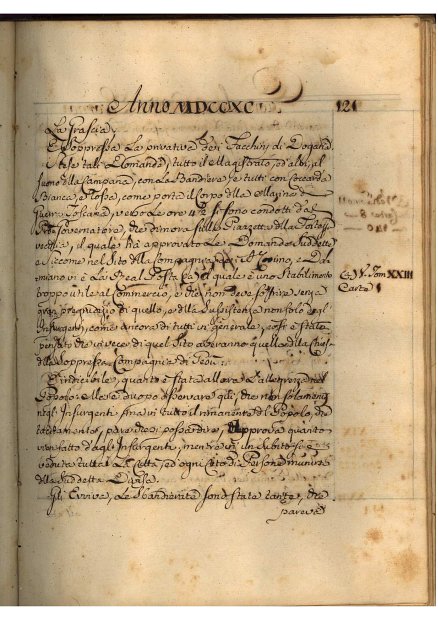 Anno MDCCXC
121
La Grascia,
E Soppressa La privativa dei Facchini di Dogana.
tali Domande, tutto il Magistrato, ed altri, al
suono della Campana, con La Bandiera e tutti con Coccarda
Bianca, e Rossa, come porta il Corpo della Marina di
Guerra Toscana, verso Le ore 4 si sono condotti dal
Governatore, che dimora sulla Piazzetta della Fortezza
vecchia, il quale ha approvato Le Domande Suddette
e siccome nel Sito della Compagnia dei SS. Cosimo, e Da-
miano vi è La Real Posta, la quale è uno Stabilimento
troppo utile al Commercio, e che non deve soffrire senza
gran pregiudizio di quello, e della Sussistenza non solo degl'
Insurgenti, come ancora di tutti in generale, così è stato
pensato che in vece di quel Sito averanno quello della Chiesa
della Soppressa Compagnia di Gesù.
G. W. Tom XXIII
Carte 1
E indicibile, quanto è stata allora L'allegrezza nel
Popolo: Ella è d'uopo osservare qui, che non solamente
negl' Insurgenti, ma in tutto il rimanente del Popolo, che
tacitamente, per dir così, approva quanto
vien fatto dagl' Insurgenti, mentre in un subito si è
veduta tutta La Città, ed ogni Ceto di Persone munirsi
della suddetta
Gli Evviva, Le Sbandierate sono state tante, che
pareva